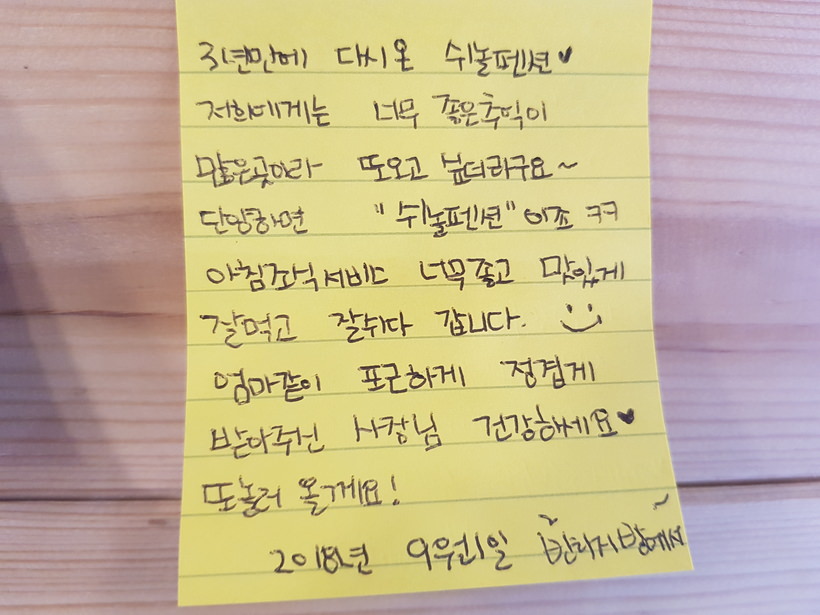 3년만에 다시온 쉬놀펜션♥
저희에게는 너무 좋은추억이
많은곳이라 또오고 싶더라구요~
단양하면 "쉬놀펜션"이죠 ㅋㅋ
아침조식서비스 너무좋고 맛있게
잘먹고 잘쉬다 갑니다. ☺
엄마같이 포근하게 정겹게
받아주신 사장님 건강하세요♥
또놀러 올게요!
2018년 9월1일